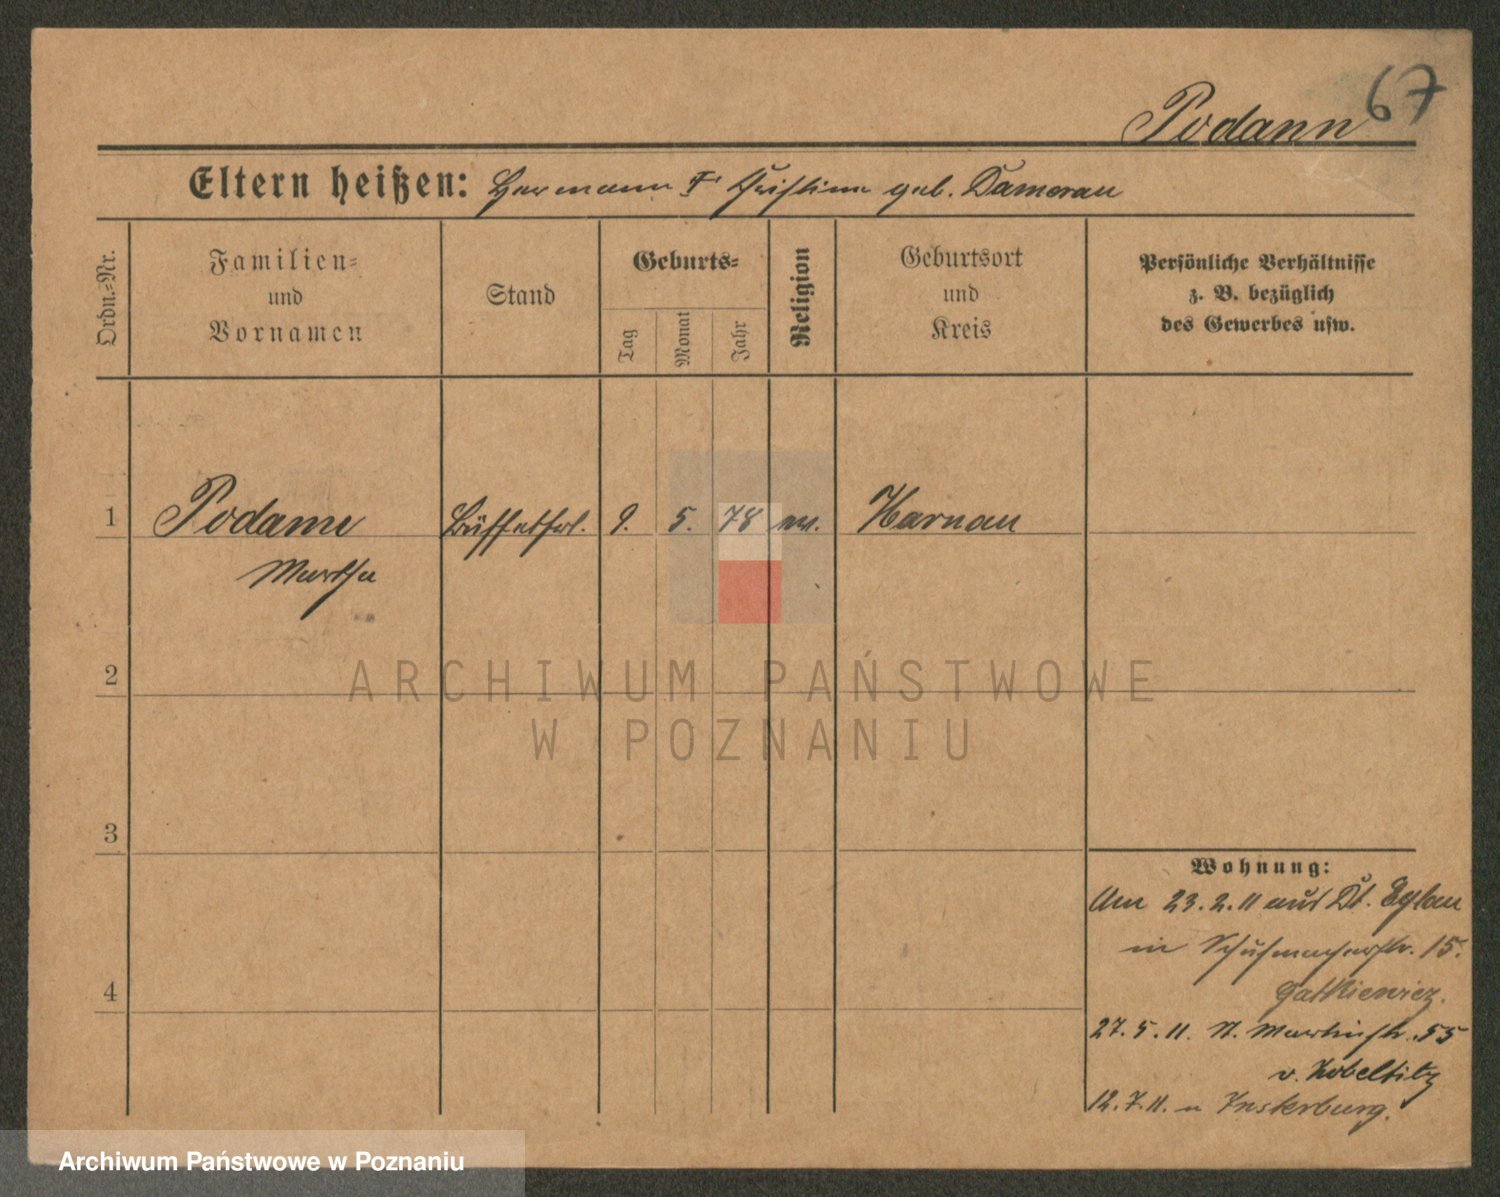 67
Podann
Eltern heißen: Hermann u. Christine geb. Damerau
Ordn.-Nr.
Familien- und Vornamen
Stand
Geburts-
Tag
Monat
Jahr
Religion
Geburtsort und Kreis
Persönliche Verhältnisse
z. B. bezüglich
des Gewerbes usw.
1 Podann Büffetfrl. 9. 5. 78 ev. Harnau
Martha
2
3
4
Wohnung:
Am 23.2.11 aus Dt. Eylau
in Schuhmacherstr. 15.
Gatkiewicz.
27.5.11. St. Martinstr. 55
v. Kobeltitz
12.7.11. n Insterburg.
ARCHIWUM PAŃSTWOWE
W POZNANIU
Archiwum Państwowe w Poznaniu